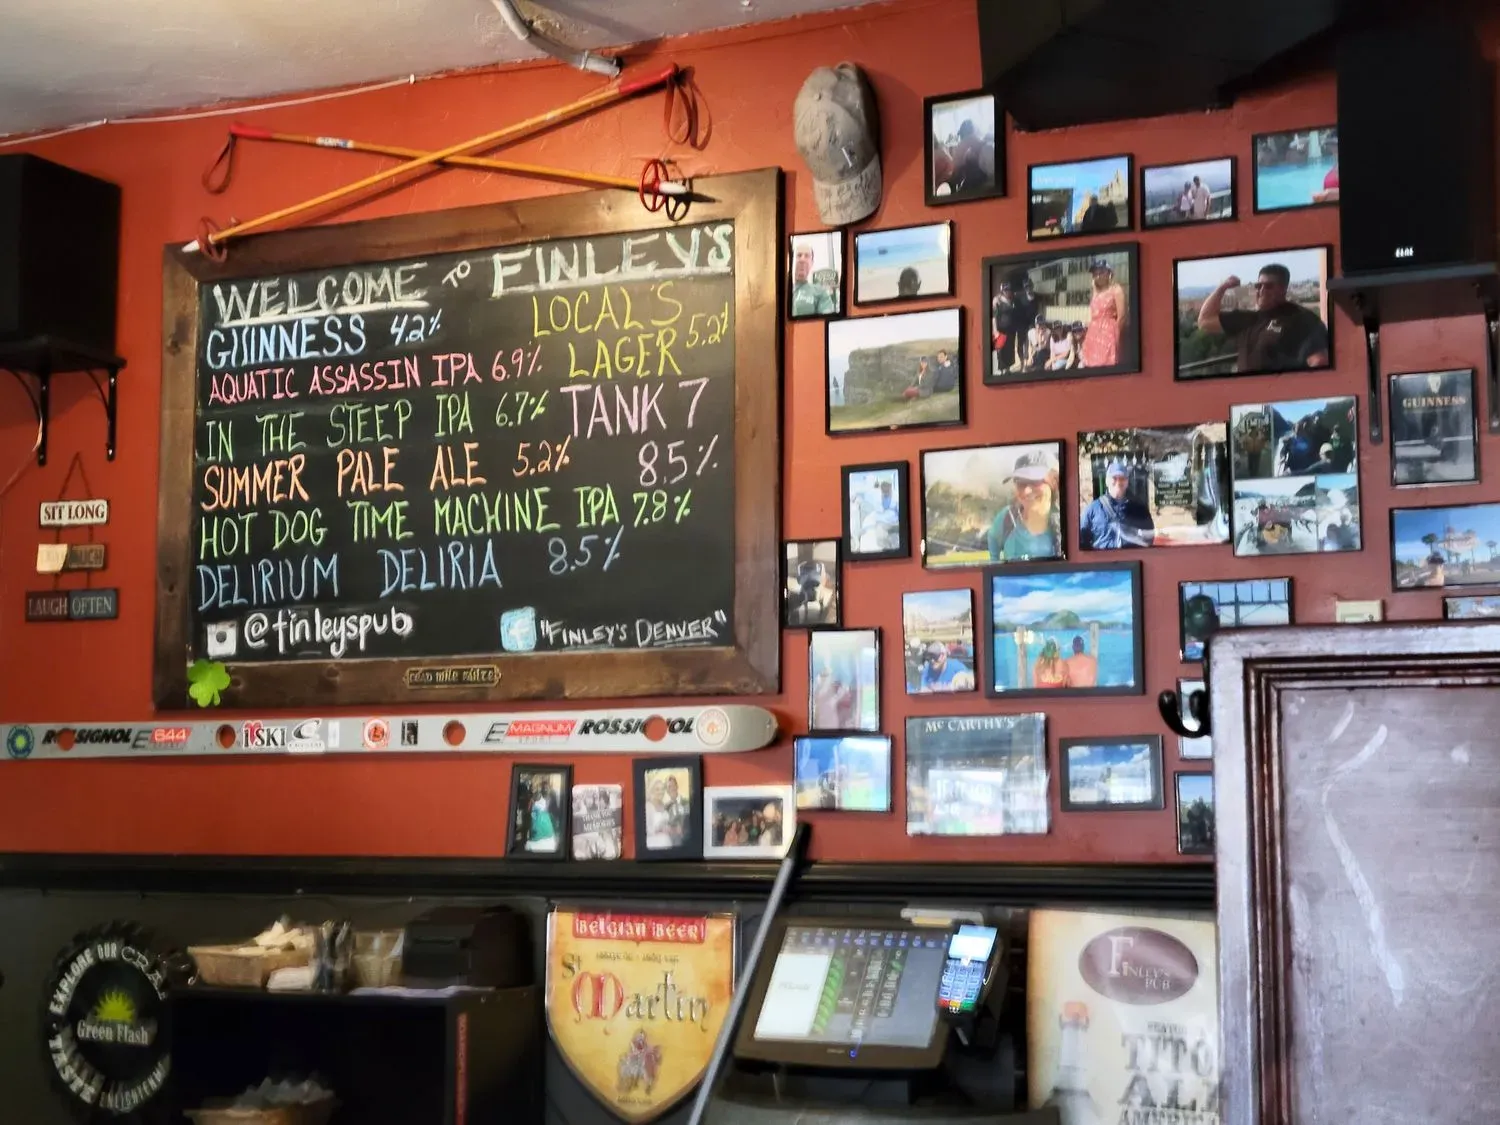 WELCOME TO FINLEY'S
GUINNESS 4.2%
LOCAL'S
LAGER 5.2%
AQUATIC ASSASSIN IPA 6.9%
IN THE STEEP IPA 6.7%
TANK 7
8.5%
SUMMER PALE ALE 5.2%
HOT DOG TIME MACHINE IPA 7.8%
DELIRIUM DELIRIA 8.5%
@finleyspub
f "FINLEY'S DENVER"
céad míle fáilte
SIT LONG
MUCH
LAUGH OFTEN
ROSSIGNOL E 644
I SKI
E MAGNUM
ROSSIGNOL
GUINNESS
MC CARTHY'S
EXPLORE OUR
Green Flash
TASTES
BELGIAN BEER
St
Martin
FINLEY'S
PUB